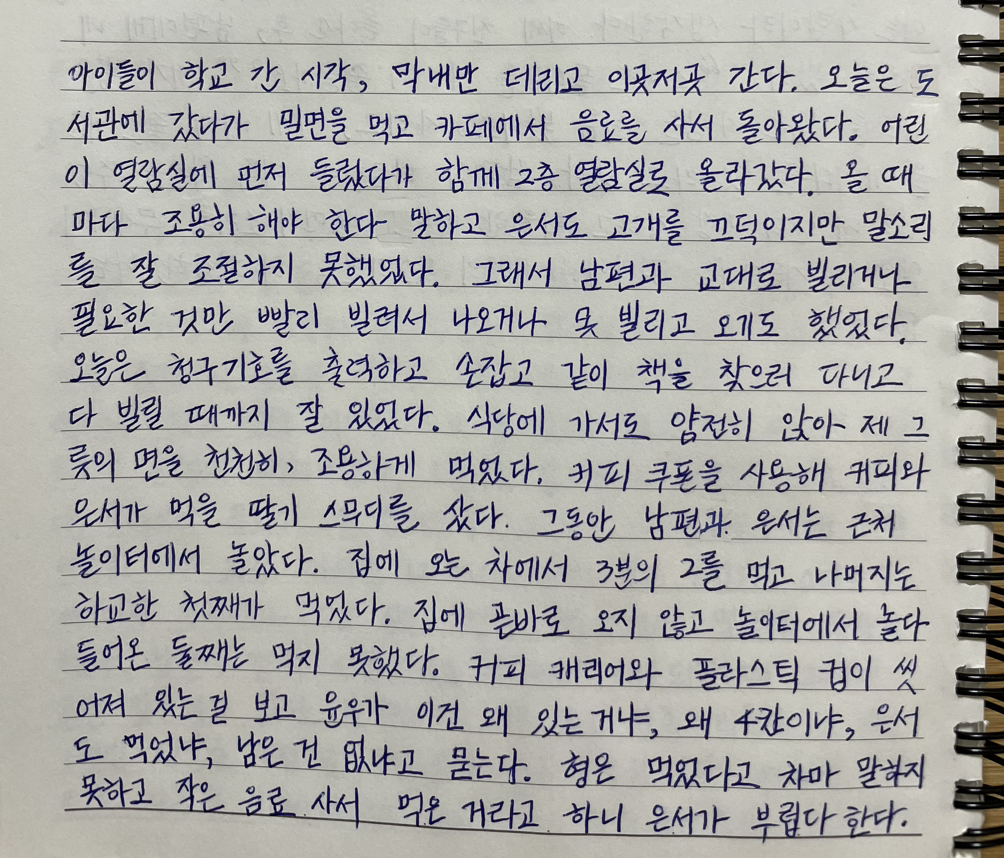 아이들이 학교 간 시각, 막내만 데리고 이곳저곳 간다. 오늘은 도
서관에 갔다가 밀면을 먹고 카페에서 음료를 사서 돌아왔다. 어린
이 열람실에 먼저 들렀다가 함께 2층 열람실로 올라갔다. 올 때
마다 조용히 해야 한다 말하고 은서도 고개를 끄덕이지만 말소리
를 잘 조절하지 못했었다. 그래서 남편과 교대로 빌리거나
필요한 것만 빨리 빌려서 나오거나 못 빌리고 오기도 했었다.
오늘은 청구기호를 출력하고 손잡고 같이 책을 찾으러 다니고
다 빌릴 때까지 잘 있었다. 식당에 가서도 얌전히 앉아 제 그
릇의 면을 천천히, 조용하게 먹었다. 커피 쿠폰을 사용해 커피와
은서가 먹을 딸기 스무디를 샀다. 그동안 남편과 은서는 근처
놀이터에서 놀았다. 집에 오는 차에서 3분의 2를 먹고 나머지는
하교한 첫째가 먹었다. 집에 곧바로 오지 않고 놀이터에서 놀다
들어온 둘째는 먹지 못했다. 커피 캐리어와 플라스틱 컵이 씻
어져 있는 걸 보고 윤우가 이건 왜 있는거냐, 왜 4칸이냐, 은서
도 먹었냐, 남은 건 없냐고 묻는다. 형은 먹었다고 차마 말하지
못하고 작은 음료 사서 먹은 거라고 하니 은서가 부럽다 한다.